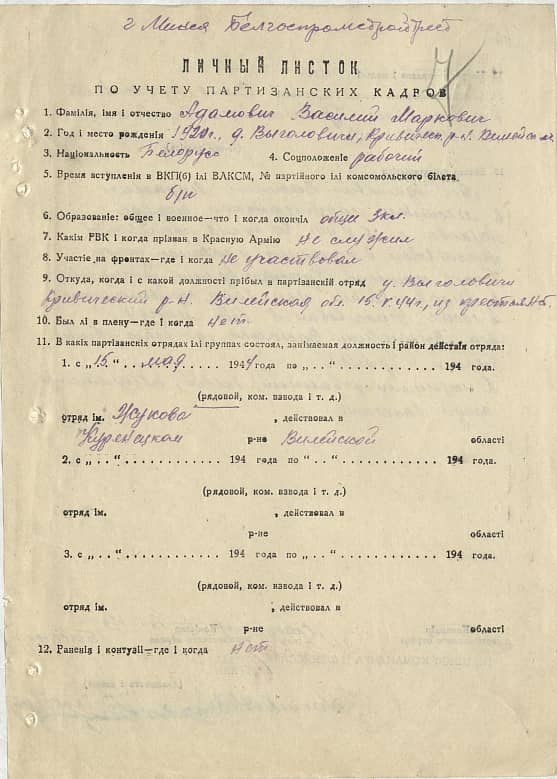 г Минск Белгоспромстройтрест
ЛИЧНЫЙ ЛИСТОК
ПО УЧЕТУ ПАРТИЗАНСКИХ КАДРОВ
1. Фамілія, імя і отчество Адамович Василий Маркович
2. Год і место рождения 1920 г. д. Выголовичи, Кривичск. р-н. Вилейск
3. Національность Белорусс 4. Соцположеніе рабочий
5. Время вступления в ВКП(б) ілі ВЛКСМ, № партійного ілі комсомольского білета
б/п
6. Образованіе: общее і военное—что і когда окончіл общее 3 кл.
7. Какім РВК і когда прізван в Красную Армію не служил
8. Участіе на фронтах—где і когда не участвовал
9. Откуда, когда і с какой должності прібыл в партизанскій отряд Выголовичи
Кривический р-н. Вилейская обл. 15.V.44 г, из
10. Был лі в плену—где і когда нет
11. В какіх партізанскіх отрядах ілі группах состоял, занімаемая должность і район действія отряда:
1. с „15.“ мая 1944 года по „ . . “ 194 года.
(рядовой, ком. взвода і т. д.)
отряд ім. Жукова , действовал в
Куренецком р-не Вилейской області
2. с „ . . “ 194 года по „ . . “ 194 года.
(рядовой, ком. взвода і т. д.)
отряд ім. , действовал в
р-не області
3. с „ . . “ 194 года по „ . . “ 194 года.
(рядовой, ком. взвода і т. д.)
отряд ім. , действовал в
р-не області
12. Раненія і контузіі—где і когда нет